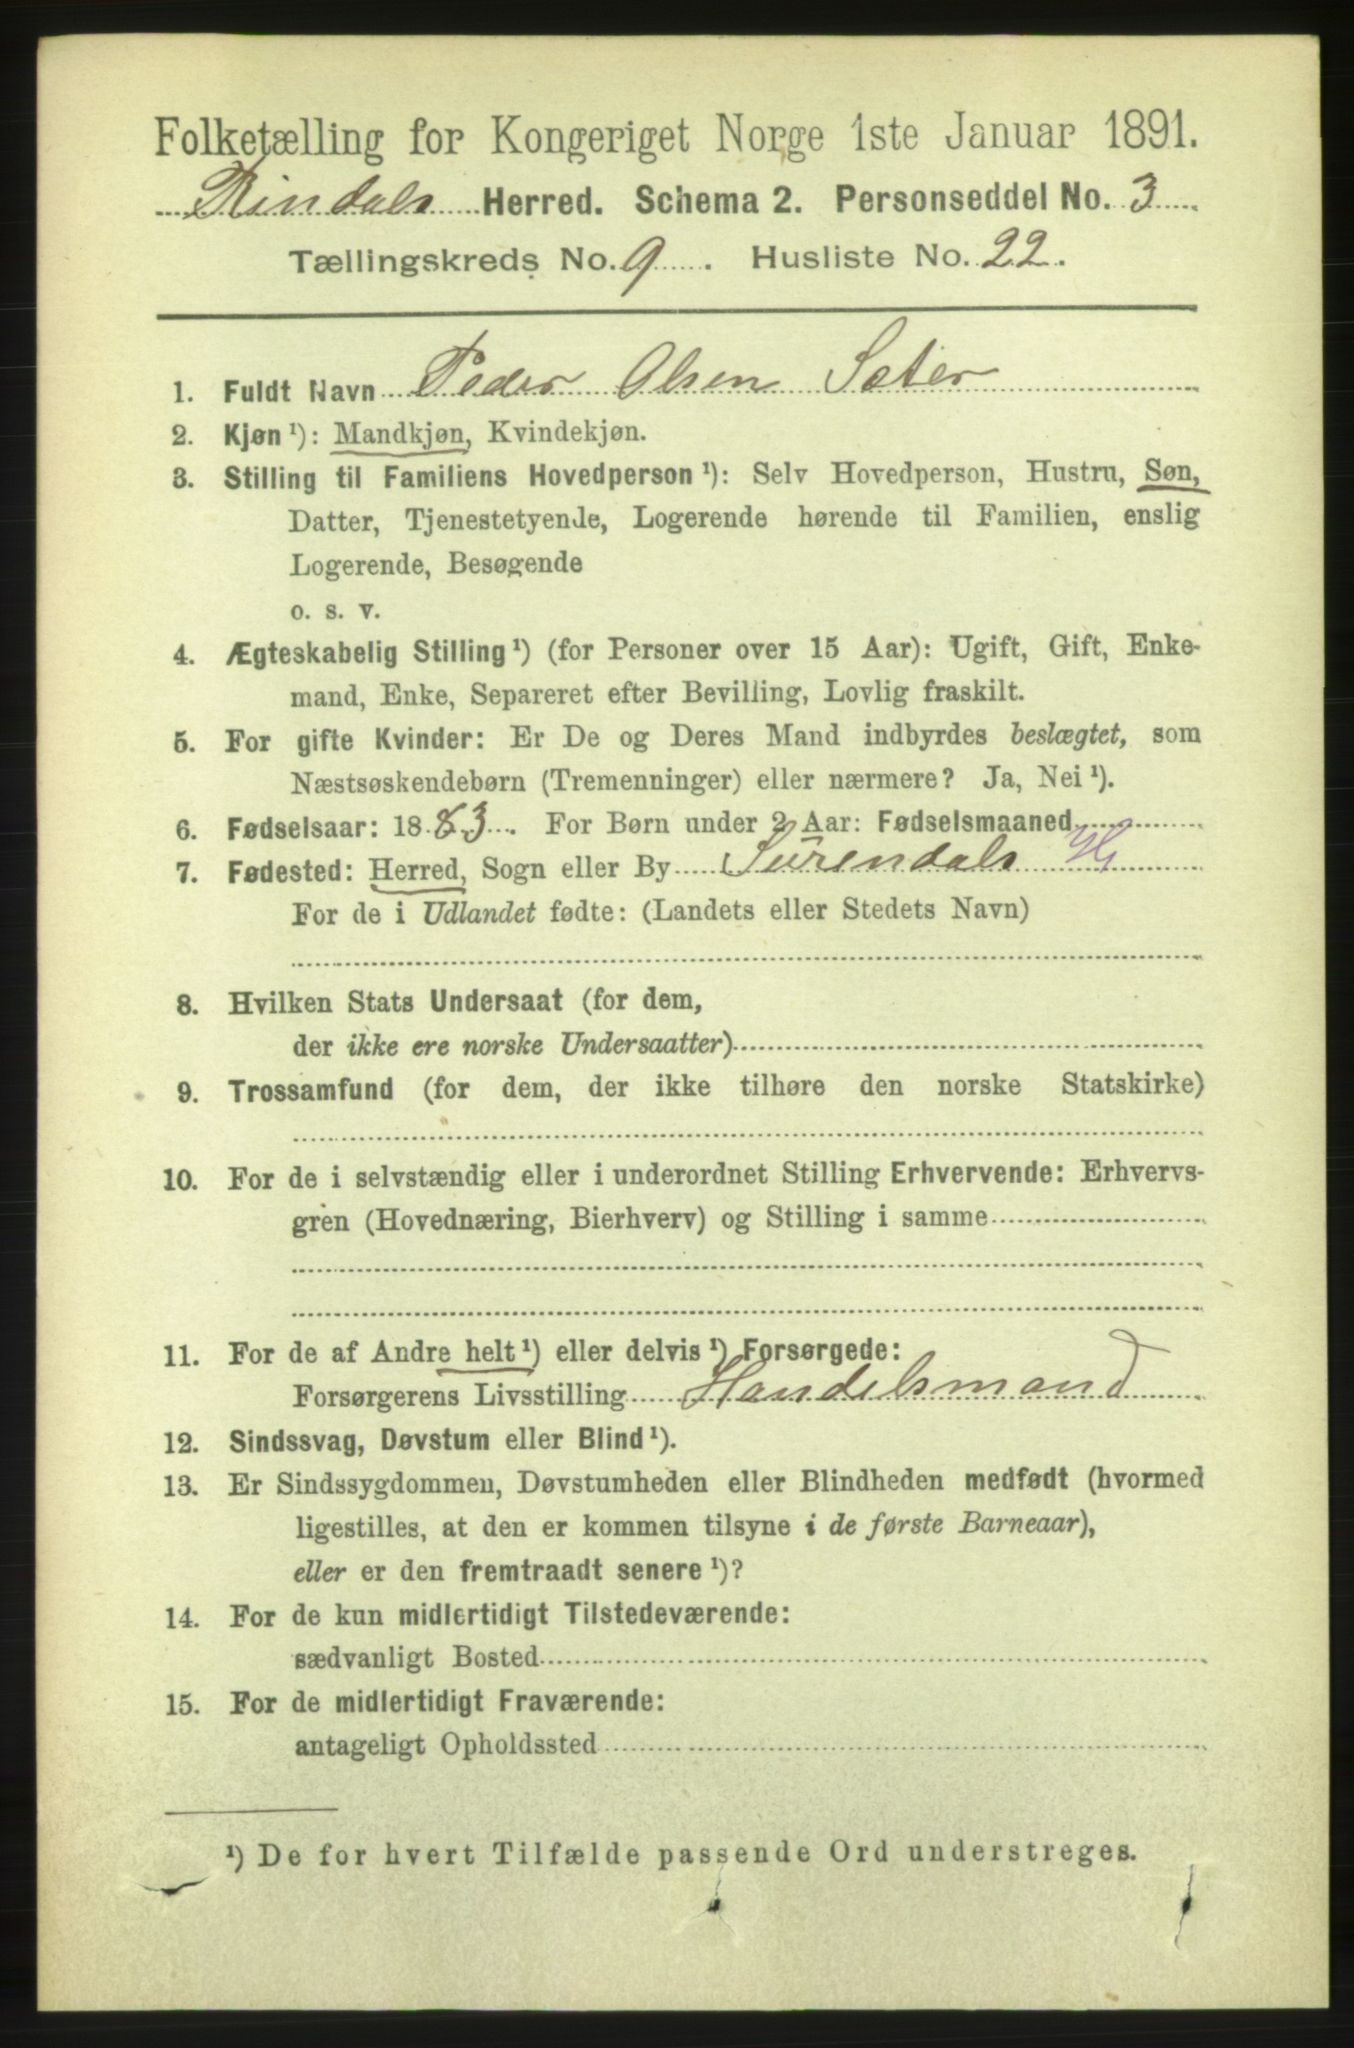 Folketælling for Kongeriget Norge 1ste Januar 1891.
Rindals Herred. Schema 2. Personseddel No. 3
Tællingskreds No. 9. Husliste No. 22.
1. Fuldt Navn Peder Olsen Sæter
2. Kjøn ¹): Mandkjøn, Kvindekjøn.
3. Stilling til Familiens Hovedperson ¹): Selv Hovedperson, Hustru, Søn,
Datter, Tjenestetyende, Logerende hørende til Familien, enslig
Logerende, Besøgende
o. s. v.
4. Ægteskabelig Stilling ¹) (for Personer over 15 Aar): Ugift, Gift, Enke-
mand, Enke, Separeret efter Bevilling, Lovlig fraskilt.
5. For gifte Kvinder: Er De og Deres Mand indbyrdes beslægtet, som
Næstsøskendebørn (Tremenninger) eller nærmere? Ja, Nei ¹).
6. Fødselsaar: 1883. For Børn under 2 Aar: Fødselsmaaned
7. Fødested: Herred, Sogn eller By Surendals H
For de i Udlandet fødte: (Landets eller Stedets Navn)
8. Hvilken Stats Undersaat (for dem,
der ikke ere norske Undersaatter)
9. Trossamfund (for dem, der ikke tilhøre den norske Statskirke)
10. For de i selvstændig eller i underordnet Stilling Erhvervende: Erhvervs-
gren (Hovednæring, Bierhverv) og Stilling i samme
11. For de af Andre helt ¹) eller delvis ¹) Forsørgede:
Forsørgerens Livsstilling Handelsmand
12. Sindssvag, Døvstum eller Blind ¹).
13. Er Sindssygdommen, Døvstumheden eller Blindheden medfødt (hvormed
ligestilles, at den er kommen tilsyne i de første Barneaar),
eller er den fremtraadt senere ¹)?
14. For de kun midlertidigt Tilstedeværende:
sædvanligt Bosted
15. For de midlertidigt Fraværende:
antageligt Opholdssted
¹) De for hvert Tilfælde passende Ord understreges.